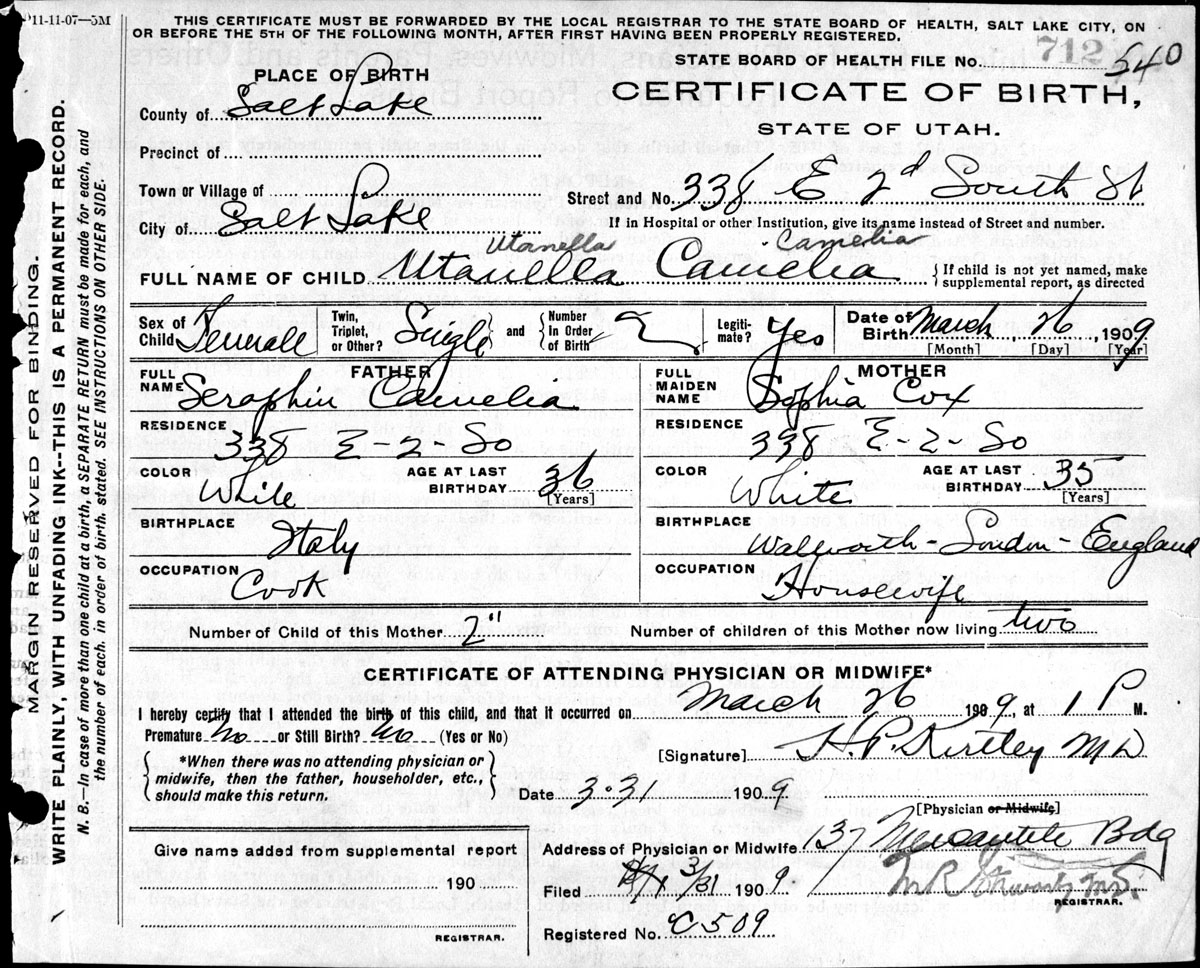 P11-11-07—5M
THIS CERTIFICATE MUST BE FORWARDED BY THE LOCAL REGISTRAR TO THE STATE BOARD OF HEALTH, SALT LAKE CITY, ON
OR BEFORE THE 5TH OF THE FOLLOWING MONTH, AFTER FIRST HAVING BEEN PROPERLY REGISTERED.
STATE BOARD OF HEALTH FILE No. 712 540
PLACE OF BIRTH
CERTIFICATE OF BIRTH,
STATE OF UTAH.
County of Salt Lake
Precinct of
Town or Village of
Street and No. 338 E 2d South St
City of Salt Lake
If in Hospital or other Institution, give its name instead of Street and number.
Utanella Camelia
FULL NAME OF CHILD Utanella Camelia {If child is not yet named, make
supplemental report, as directed
Sex of Child Female
Twin, Triplet, or Other? Single
and {Number In Order of Birth 2
Legiti- mate? Yes
Date of Birth March 26, 1909
[Month] [Day] [Year]
FATHER
FULL NAME Seraphin Camelia
RESIDENCE 338 E-2-So
COLOR White
AGE AT LAST BIRTHDAY 36 [Years]
BIRTHPLACE Italy
OCCUPATION Cook
MOTHER
FULL MAIDEN NAME Sophia Cox
RESIDENCE 338 E-2-So
COLOR White
AGE AT LAST BIRTHDAY 35 [Years]
BIRTHPLACE Walworth-London-England
OCCUPATION Housewife
Number of Child of this Mother 2"
Number of children of this Mother now living two
CERTIFICATE OF ATTENDING PHYSICIAN OR MIDWIFE*
I hereby certify that I attended the birth of this child, and that it occurred on March 26 1909, at 1 P M.
Premature No or Still Birth? No (Yes or No)
[Signature] H.P. Kirtley MD
*When there was no attending physician or
midwife, then the father, householder, etc.,
should make this return.
Date 3.31 1909
[Physician or Midwife]
Address of Physician or Midwife 137 Mercantile Bdg
Give name added from supplemental report
190
REGISTRAR.
Filed 3/31 1909
REGISTRAR.
Registered No. C509
MARGIN RESERVED FOR BINDING.
WRITE PLAINLY, WITH UNFADING INK--THIS IS A PERMANENT RECORD.
N. B.—In case of more than one child at a birth, a SEPARATE RETURN must be made for each, and
the number of each, in order of birth, stated. SEE INSTRUCTIONS ON OTHER SIDE.